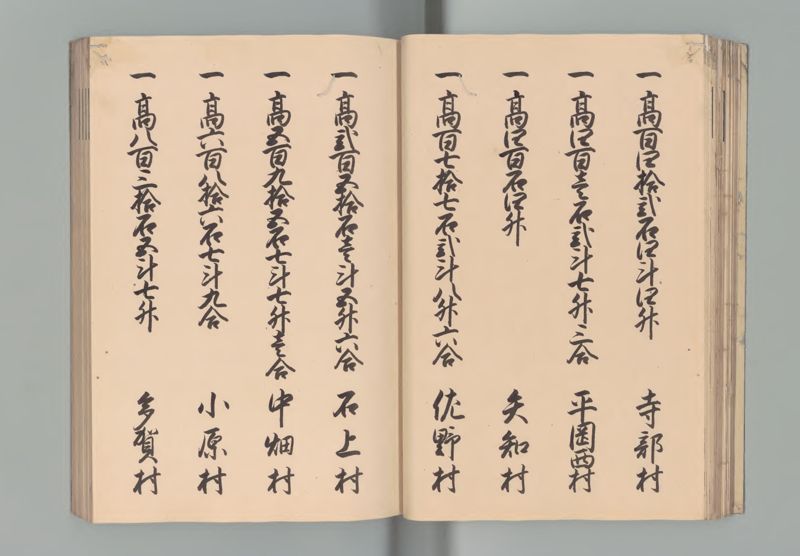 一 高百四拾弐石四斗四升 寺部村
一 高四百壱石弐斗七升二合 平岡西村
一 高四百石四升 矢知村
一 高百七拾七石弐斗八升六合 佐野村
一 高弐百五拾石壱斗五升六合 石上村
一 高五百九拾五石七斗七升壱合 中畑村
一 高六百八拾六石七斗九合 小原村
一 高八百二拾石五斗七升 多賀村